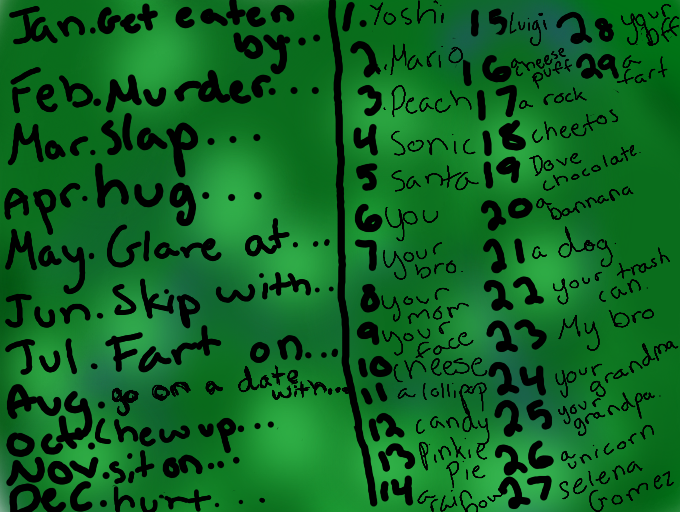 Jan. Get eaten
by...
Feb. Murder...
Mar. slap...
Apr. hug...
May. Glare at...
Jun. Skip with...
Jul. Fart on...
Aug. go on a date
with...
Oct. Chew up...
Nov. sit on...
DEC. hurt...
1. Yoshi
2. Mario
3. Peach
4 Sonic
5 Santa
6 you
7 your
bro.
8 your
mom
9 your
face
10 cheese
11 a lollipop
12 candy
13 Pinkie
Pie
14 a
rainbow
15 Luigi
16 a cheese
puff
17 a rock
18 cheetos
19 Dove
chocolate.
20 a
bannana
21 a dog.
22 your trash
can.
23 My bro
24 your
grandma
25 your
grandpa.
26 a
unicorn
27 selena
Gomez
28 your
bff
29 a
fart